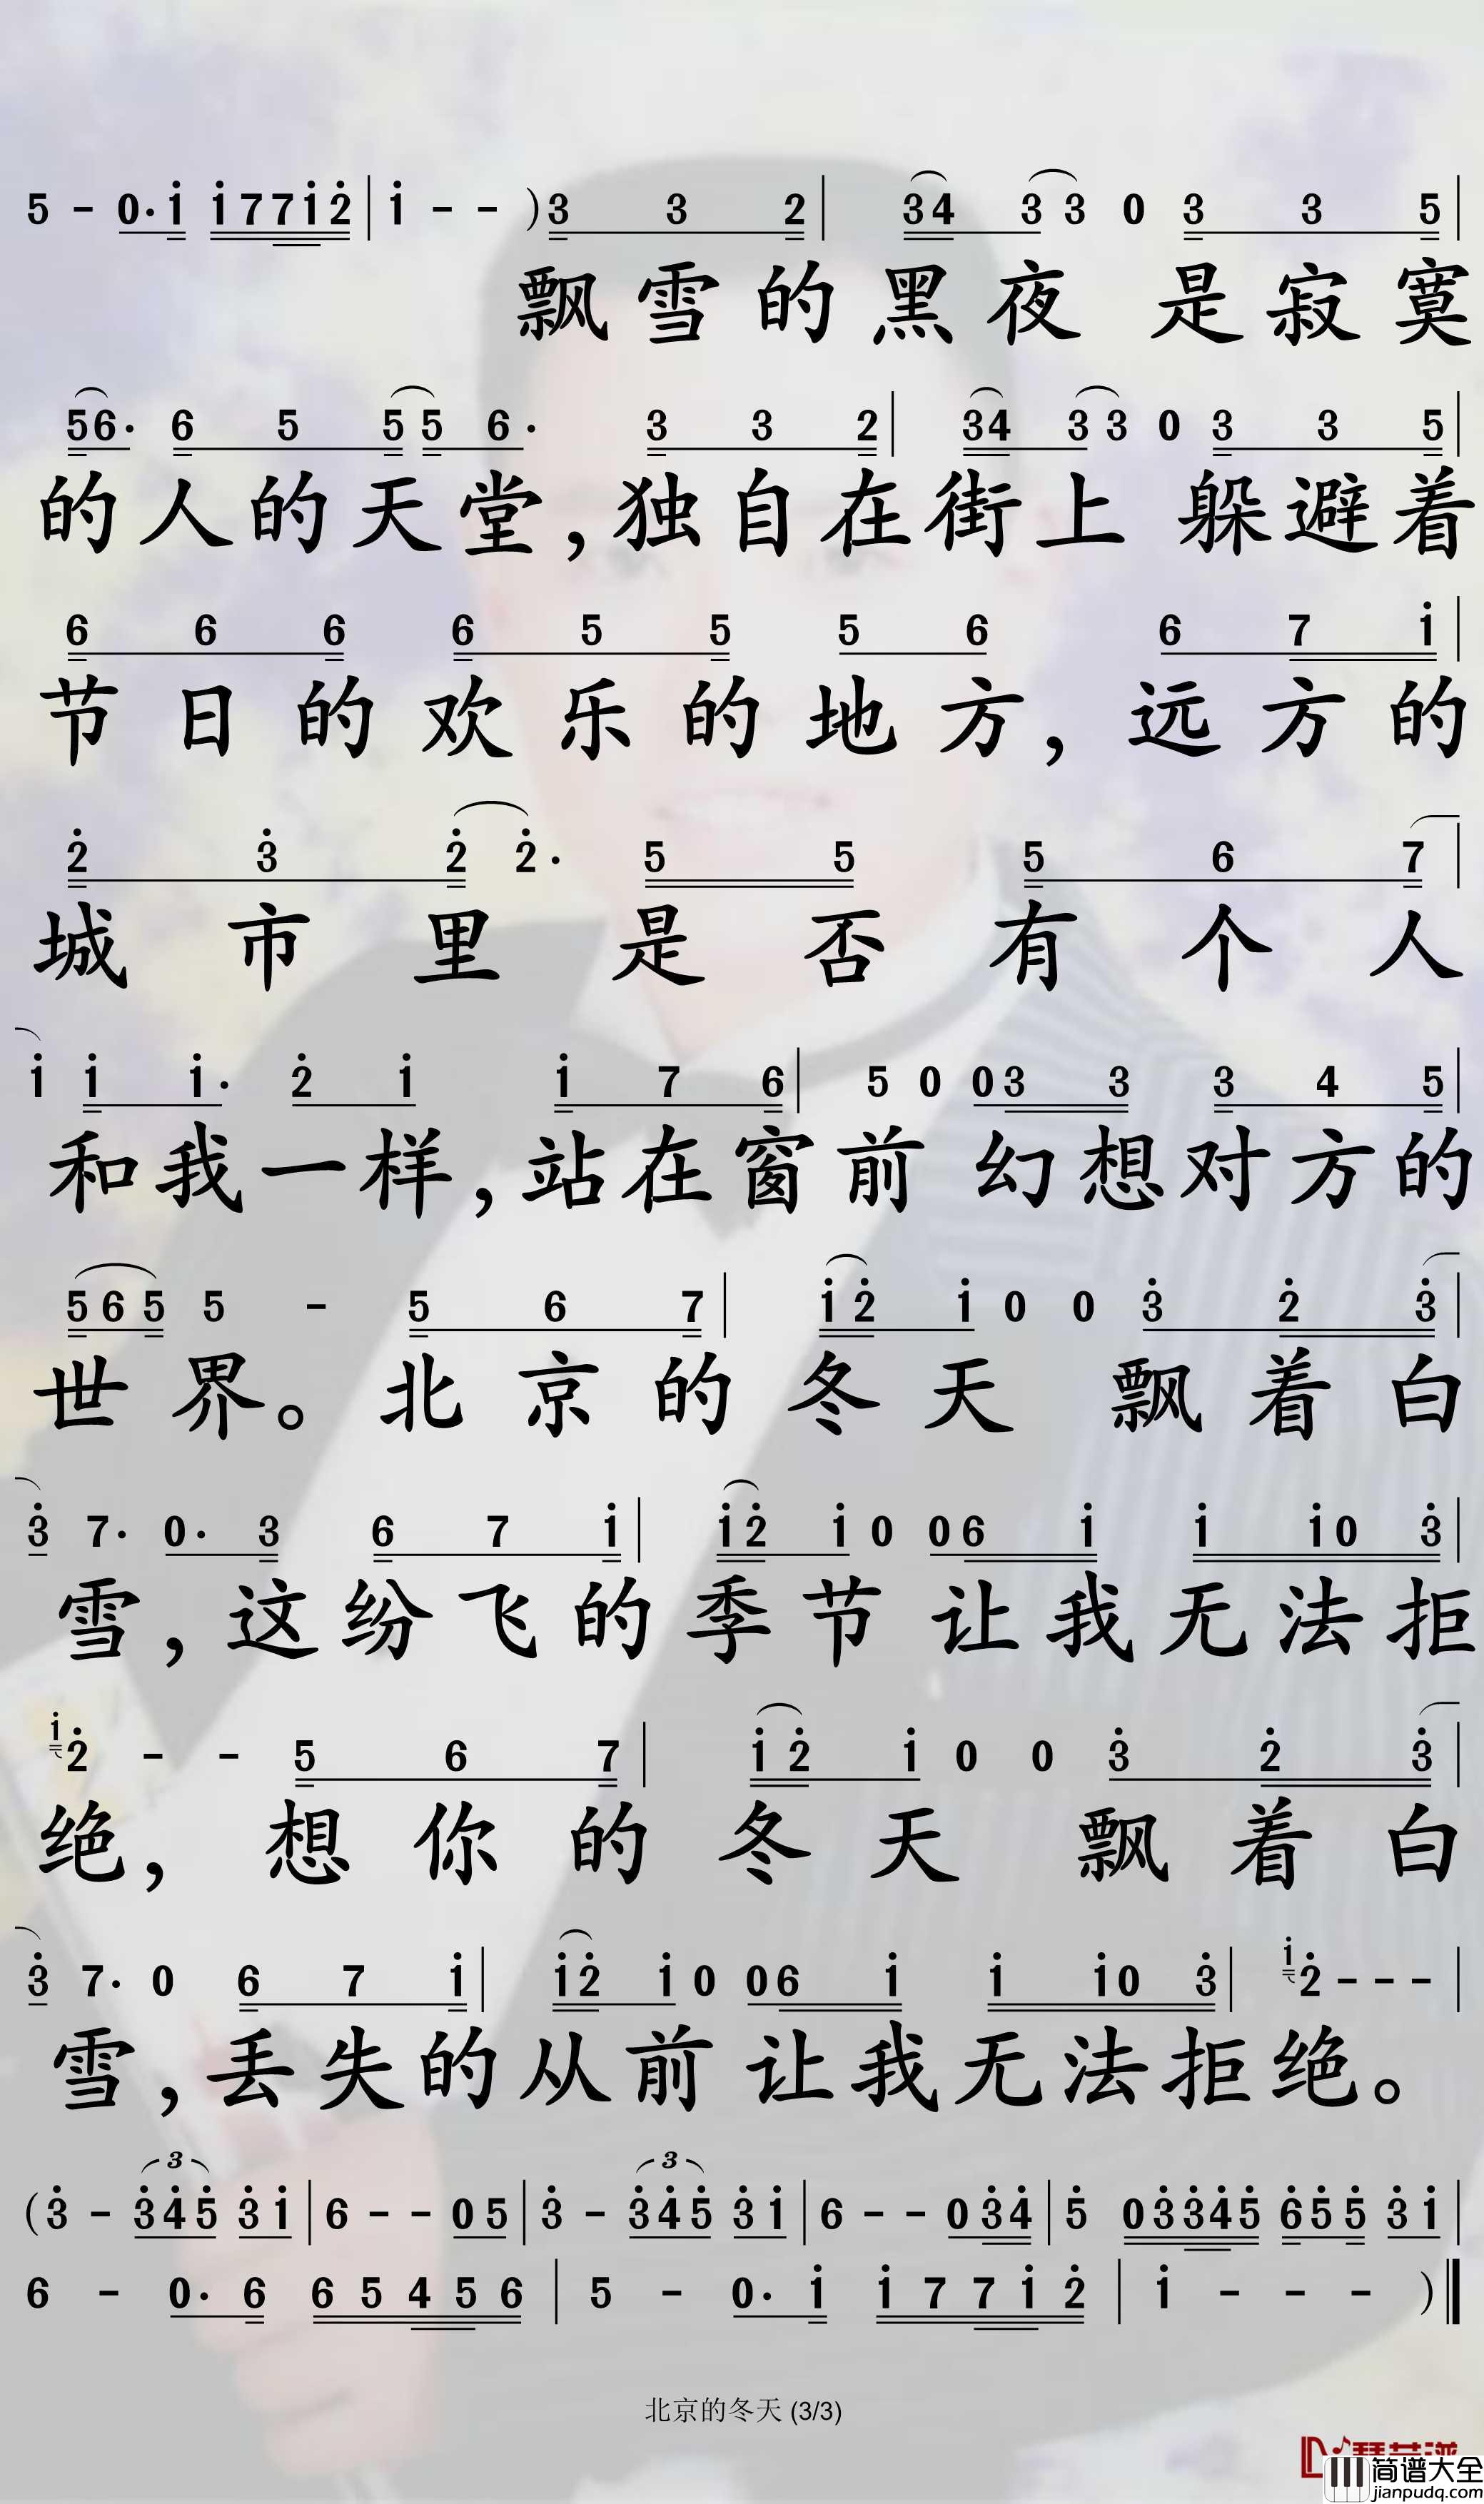 5 - 0·i i77i2 | i - - ) 3 3 2 | 34 33 0 3 3 5 |
飘雪的黑夜 是寂寞
56· 6 5 55 6· 3 3 2 | 34 33 0 3 3 5 |
的人的天堂,独自在街上 躲避着
6 6 6 6 5 5 5 6 6 7 i |
节日的欢乐的地方,远方的
2 3 2 2· 5 5 5 6 7 |
城市里是否有个人
i i i· 2 i i 7 6 | 5 0 03 3 3 4 5 |
和我一样,站在窗前 幻想对方的
565 5 - 5 6 7 | i2 i 0 0 3 2 3 |
世界。北京的冬天 飘着白
3 7· 0· 3 6 7 i | i2 i 0 06 i i i0 3 |
雪,这纷飞的季节 让我无法拒
i2 - - 5 6 7 | i2 i 0 0 3 2 3 |
绝,想你的冬天 飘着白
3 7· 0 6 7 i | i2 i 0 06 i i i0 3 | i2 - - - |
雪,丢失的从前 让我无法拒绝。
3 3
( 3 - 345 3i | 6 - - 05 | 3 - 345 3i | 6 - - 034 | 5 03345 655 3i |
6 - 0· 6 65456 | 5 - 0· i i77i2 | i - - - ) ‖
北京的冬天 (3/3)
简谱大全
jianpudq.com